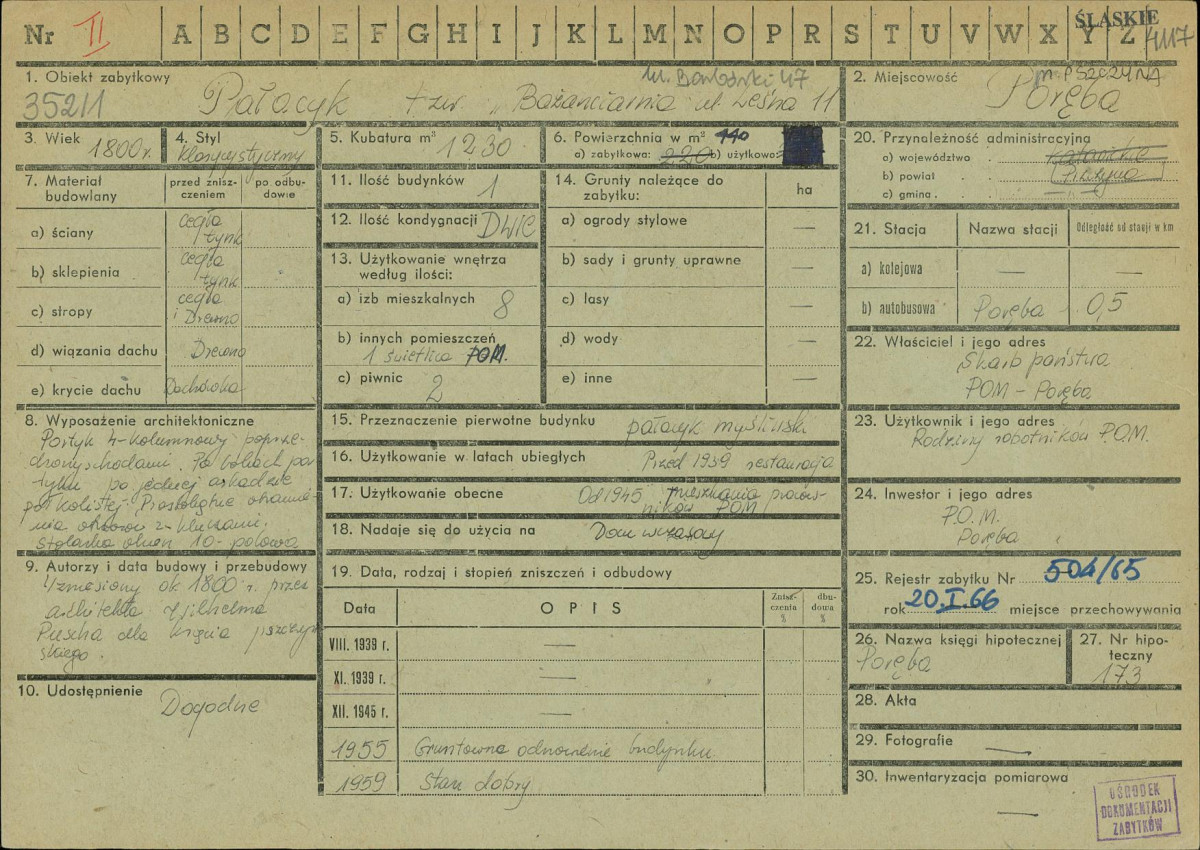 Nr II A B C D E F G H I J K L M N O P R S T U V W X Y Z
ŚLĄSKIE
4117
1. Obiekt zabytkowy
352/1
ul. Barbórki 47
Pałacyk tzw. "Bażanciarnia" ul. Leśna 11
2. Miejscowość
m. PSZCZYNA
Poręba
3. Wiek 1800 r.
4. Styl
klasycystyczny
5. Kubatura m³ 1230
6. Powierzchnia w m² 440
a) zabytkowa: 220 b) użytkowo:
7. Materiał budowlany
przed zniszczeniem
po odbudowie
a) ściany
cegła
tynk
b) sklepienia
cegła
tynk
c) stropy
cegła
i Drewno
d) wiązania dachu Drewno
e) krycie dachu Dachówka
8. Wyposażenie architektoniczne
Portyk 4-kolumnowy poprze-
dzony schodami. Po bokach por
tyku po jednej arkadzie
półkolistej. Prostokątne obramie-
nia okien z kluczami.
Stolarka okien 10-polowa
9. Autorzy i data budowy i przebudowy
Wzniesiony ok. 1800 r. przez
architekta Wilhelma
Puscha dla księcia pszczyń
skiego.
10. Udostępnienie
Dogodne
11. Ilość budynków 1
12. Ilość kondygnacji DWIE
13. Użytkowanie wnętrza
według ilości:
a) izb mieszkalnych 8
b) innych pomieszczeń
1 świetlica POM.
c) piwnic 2
14. Grunty należące do
zabytku:
ha
a) ogrody stylowe —
b) sady i grunty uprawne —
c) lasy —
d) wody —
e) inne —
15. Przeznaczenie pierwotne budynku pałacyk myśliwski
16. Użytkowanie w latach ubiegłych Przed 1939 restauracja
17. Użytkowanie obecne Od 1945 mieszkania pracow-
ników POM
18. Nadaje się do użycia na Dom wczasowy
19. Data, rodzaj i stopień zniszczeń i odbudowy
Data
OPIS
Zniszczenia %
dbudowa %
VIII. 1939 r. —
XI. 1939 r. —
XII. 1945 r. —
1955 Gruntowne odnowienie budynku
1959 Stan dobry
20. Przynależność administracyjna
a) województwo . katowickie
b) powiat . . Pszczyna
c) gmina . . — " —
21. Stacja
Nazwa stacji
Odległość od stacji w km
a) kolejowa — —
b) autobusowa Poręba 0,5
22. Właściciel i jego adres
Skarb państwa
POM - Poręba
23. Użytkownik i jego adres
Rodziny robotników P.O.M.
24. Inwestor i jego adres
P.O.M.
Poręba
25. Rejestr zabytku Nr 504/65
rok 20.I.66 miejsce przechowywania
26. Nazwa księgi hipotecznej
Poręba
27. Nr hipoteczny
173
28. Akta
29. Fotografie —
30. Inwentaryzacja pomiarowa
—
OŚRODEK
DOKUMENTACJI
ZABYTKÓW